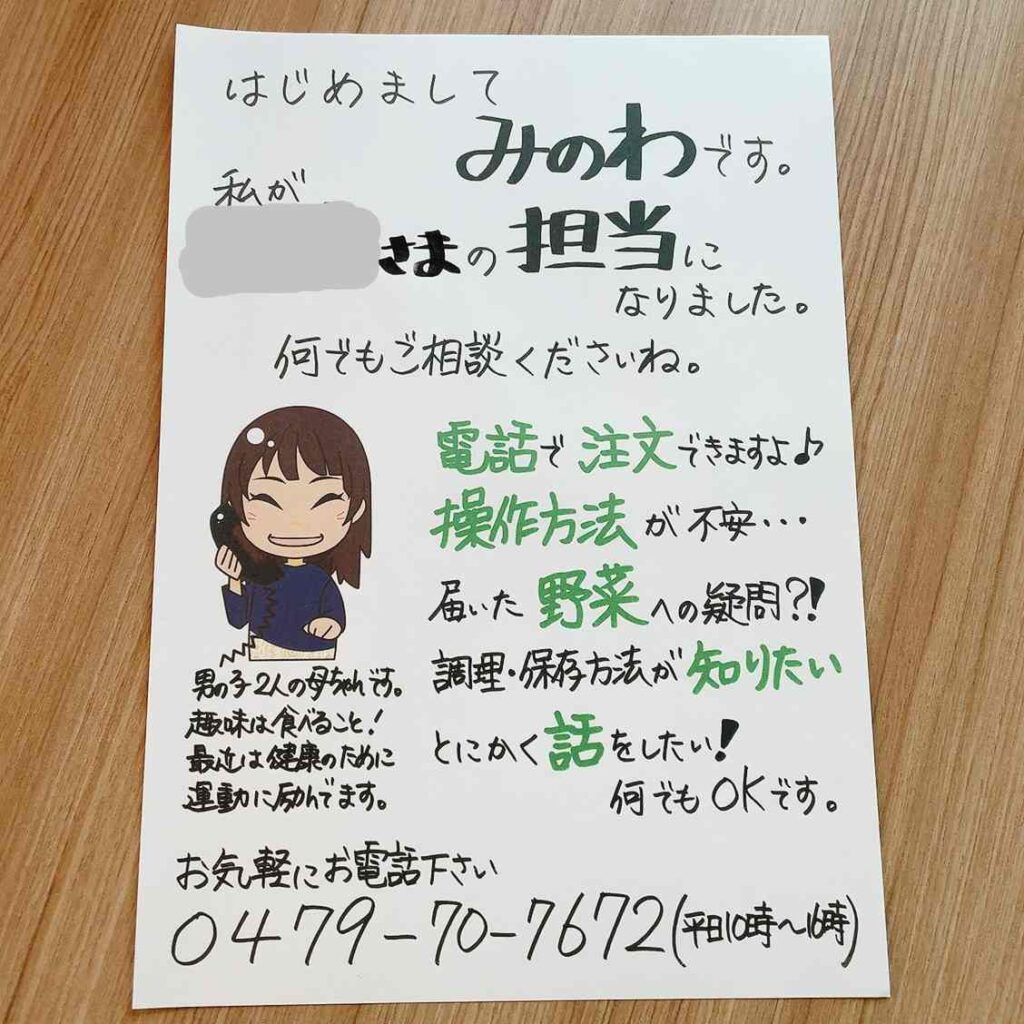 はじめまして
みのわです。
私が
さまの担当に
なりました。
何でもご相談くださいね。
電話で注文できますよ♪
操作方法が不安・・・
届いた野菜への疑問?!
調理・保存方法が知りたい
とにかく話をしたい!
何でもOKです。
男の子2人の母ちゃんです。
趣味は食べること!
最近は健康のために
運動に励んでます。
お気軽にお電話下さい
0479-70-7672(平日10時~16時)